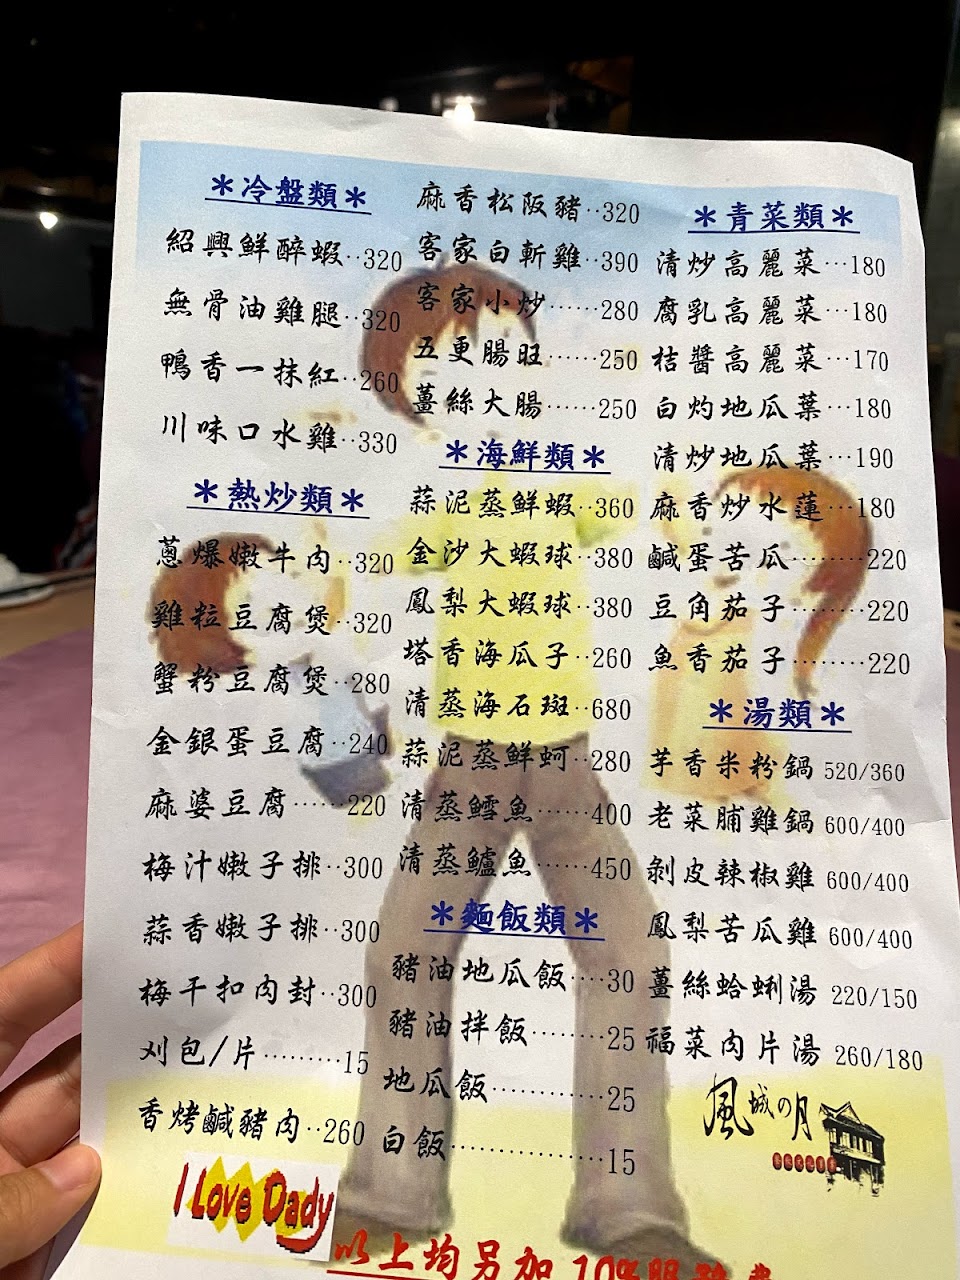 ＊冷盤類＊
紹興鮮醉蝦‥320
無骨油雞腿‥320
鴨香一抹紅‥260
川味口水雞‥330
＊熱炒類＊
蔥爆嫩牛肉‥320
雞粒豆腐煲‥320
蟹粉豆腐煲‥280
金銀蛋豆腐‥240
麻婆豆腐……220
梅汁嫩子排‥300
蒜香嫩子排‥300
梅干扣肉封‥300
刈包/片………15
香烤鹹豬肉‥260
麻香松阪豬‥320
客家白斬雞‥390
客家小炒……280
五更腸旺……250
薑絲大腸……250
＊海鮮類＊
蒜泥蒸鮮蝦‥360
金沙大蝦球‥380
鳳梨大蝦球‥380
塔香海瓜子‥260
清蒸海石斑‥680
蒜泥蒸鮮蚵‥280
清蒸鱈魚……400
清蒸鱸魚……450
＊麵飯類＊
豬油地瓜飯…30
豬油拌飯………25
地瓜飯…………25
白飯……………15
＊青菜類＊
清炒高麗菜…180
腐乳高麗菜…180
桔醬高麗菜…170
白灼地瓜葉…180
清炒地瓜葉…190
麻香炒水蓮…180
鹹蛋苦瓜………220
豆角茄子………220
魚香茄子………220
＊湯類＊
芋香米粉鍋 520/360
老菜脯雞鍋 600/400
剝皮辣椒雞 600/400
鳳梨苦瓜雞 600/400
薑絲蛤蜊湯 220/150
福菜肉片湯 260/180
風城の月
I Love Dady
以上均另加 10%服